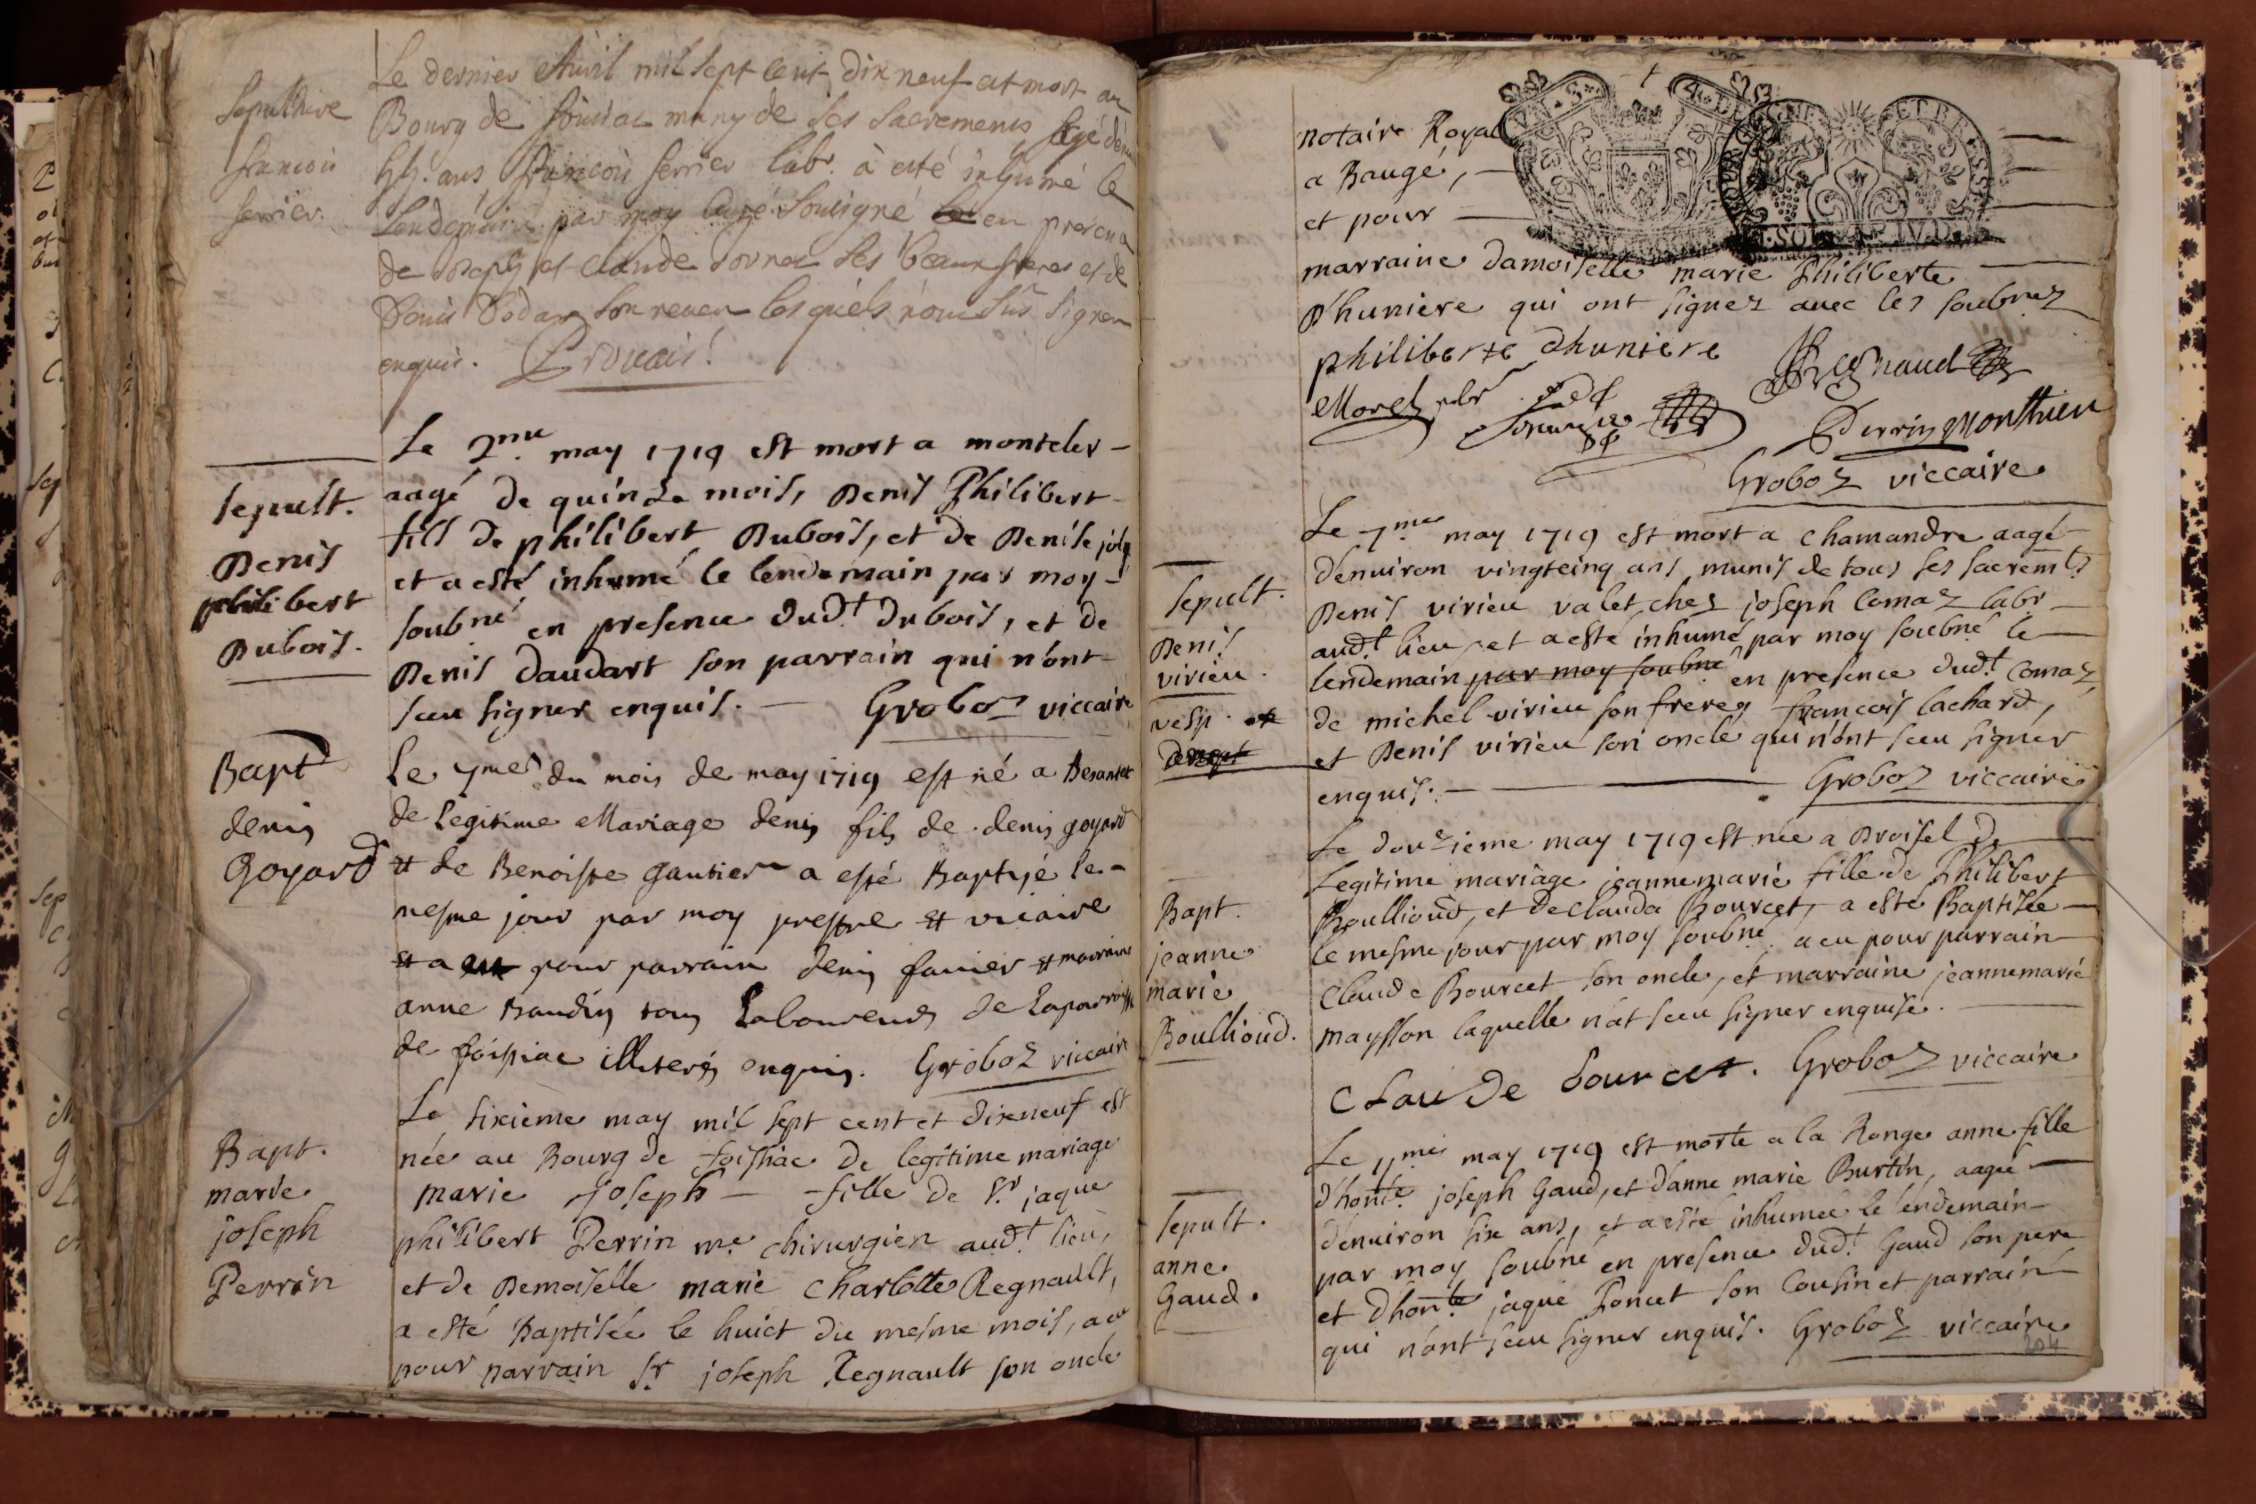 Sepulture
francois
ferrier.
Le dernier Avril mil sept cent dix neuf at mort au
Bourg de foissiac muny de ses sacrements, agé
ans francois ferrier labr. à eté inhumé le
lendemain par moy curé soussigné en presence
de et claude ses beaux freres et de
son neveu lesquels n'ont sceu signer
enquis.
Sepult.
Denis
philibert
Dubois.
Le 2me. may 1719 est mort a monteler-
aagé de quinze mois, Denis Philibert
fils de philibert Dubois, et de Denise joly
et a esté inhumé le lendemain par moy-
soubné en presence dudt. Dubois, et de
Denis daudart son parrain qui n'ont-
sceu signer enquis. — Groboz viccaire
Bapt
denis
Goyard
Le 4me du mois de may 1719 est né a
de Legitime Mariage denis fils de denis goyard
et de Benoiste gautier a esté Baptisé le-
mesme jour par moy prestre et vicaire
et a eu pour parrain denis favier et marraine
anne Baudin tous Laboureurs de Laparroisse
de foissiac illiterés enquis. Groboz viccaire
Bapt.
marie
joseph
Perrin
Le sixieme may mil sept cent et dixneuf est
née au Bourg de foissiac de legitime mariage
marie joseph — fille de Sr jaque
philibert Perrin me. chirurgien audt. lieu,
et de Demoiselle marie charlotte Regnault,
a esté Baptisée le huict du mesme mois, a eu
pour parrain Sr joseph Regnault son oncle
notaire Royal
a Baugé, —
et pour —
marraine damoiselle marie Philiberte —
D'huniere qui ont signez avec les soubnez
philiberte dhuniere Regnaud
Morel pbr
Perrin Monthieu
Groboz viccaire
Sepult.
Denis
virieu.
Le 7me may 1719 est mort a chamandre aagé-
denuiron vingtcinq ans, munis de tous ses sacremts
Denis virieu valet chez joseph Comaz labr —
audt. lieu, et a esté inhumé par moy soubné le —
lendemain par moy soubné en presence dudt. Comaz,
de michel virieu son frere, francois lachard,
et Denis virieu son oncle qui n'ont sceu signer
enquis. — Groboz viccaire
Bapt.
jeanne
marie
Boullioud.
Le douzieme may 1719 est née a Broisel de —
Legitime mariage jeannemarie fille de Philibert
Boullioud, et de Clauda Bourcet, a esté Baptisée —
le mesme jour par moy soubné a eu pour parrain
Claude Bourcet son oncle, et marraine jeannemarie
maysson laquelle n'at sceu signer enquise. —
Claude bourcet. Groboz viccaire
Sepult.
anne
Gaud.
Le 11me may 1719 est morte a la Ronge anne fille
d'honte. joseph Gaud, et d'anne marie Burtin, aagée —
denuiron six ans, et a esté inhumée le lendemain —
par moy soubné en presence dudt. Gaud son pere
et d'honte. jaque Poncet son Cousin et parrain
qui n'ont sceu signer enquis. Groboz viccaire
204